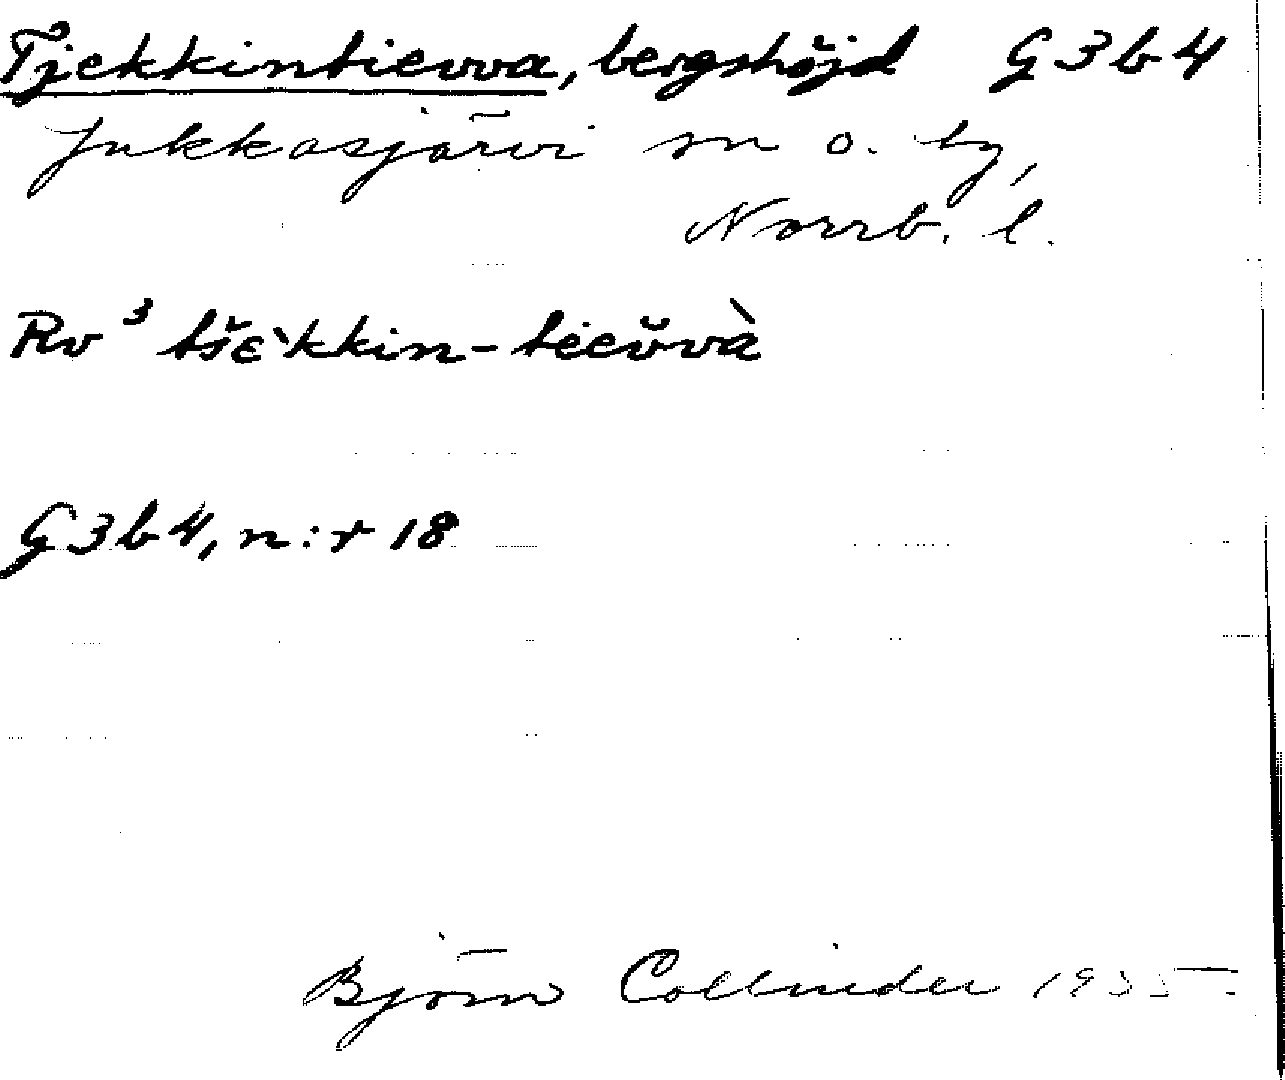 Tjekkintievva, bergshöjd G3b4
Jukkasjärvi sn o. by,
Norrb. l.
Rv ³ tšɛ̀kkin-tieŭvà
G3b4, n:r 18
Björn Collinder 1935